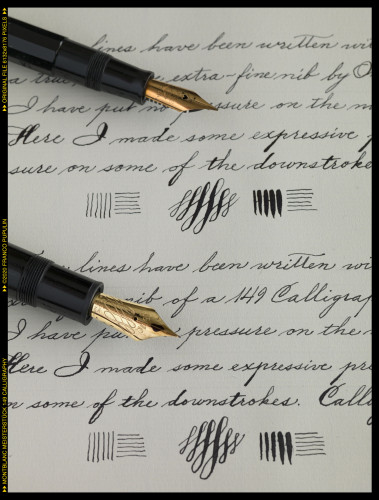 lines have been written wi
a true extra-fine nib by O
I have put no pressure on the n
Here I made some expressive p
sure on some of the downstroke
lines have been written wi
nib of a 149 Calligrap
I have pu pressure on the
Here I made some expressive pr
n some of the downstrokes. Call
ORIGINAL FILE 6132x8176 PIXELS
©2020 FRANCO PUPULIN
MONTBLANC MEISTERSTÜCK 149 CALLIGRAPHY